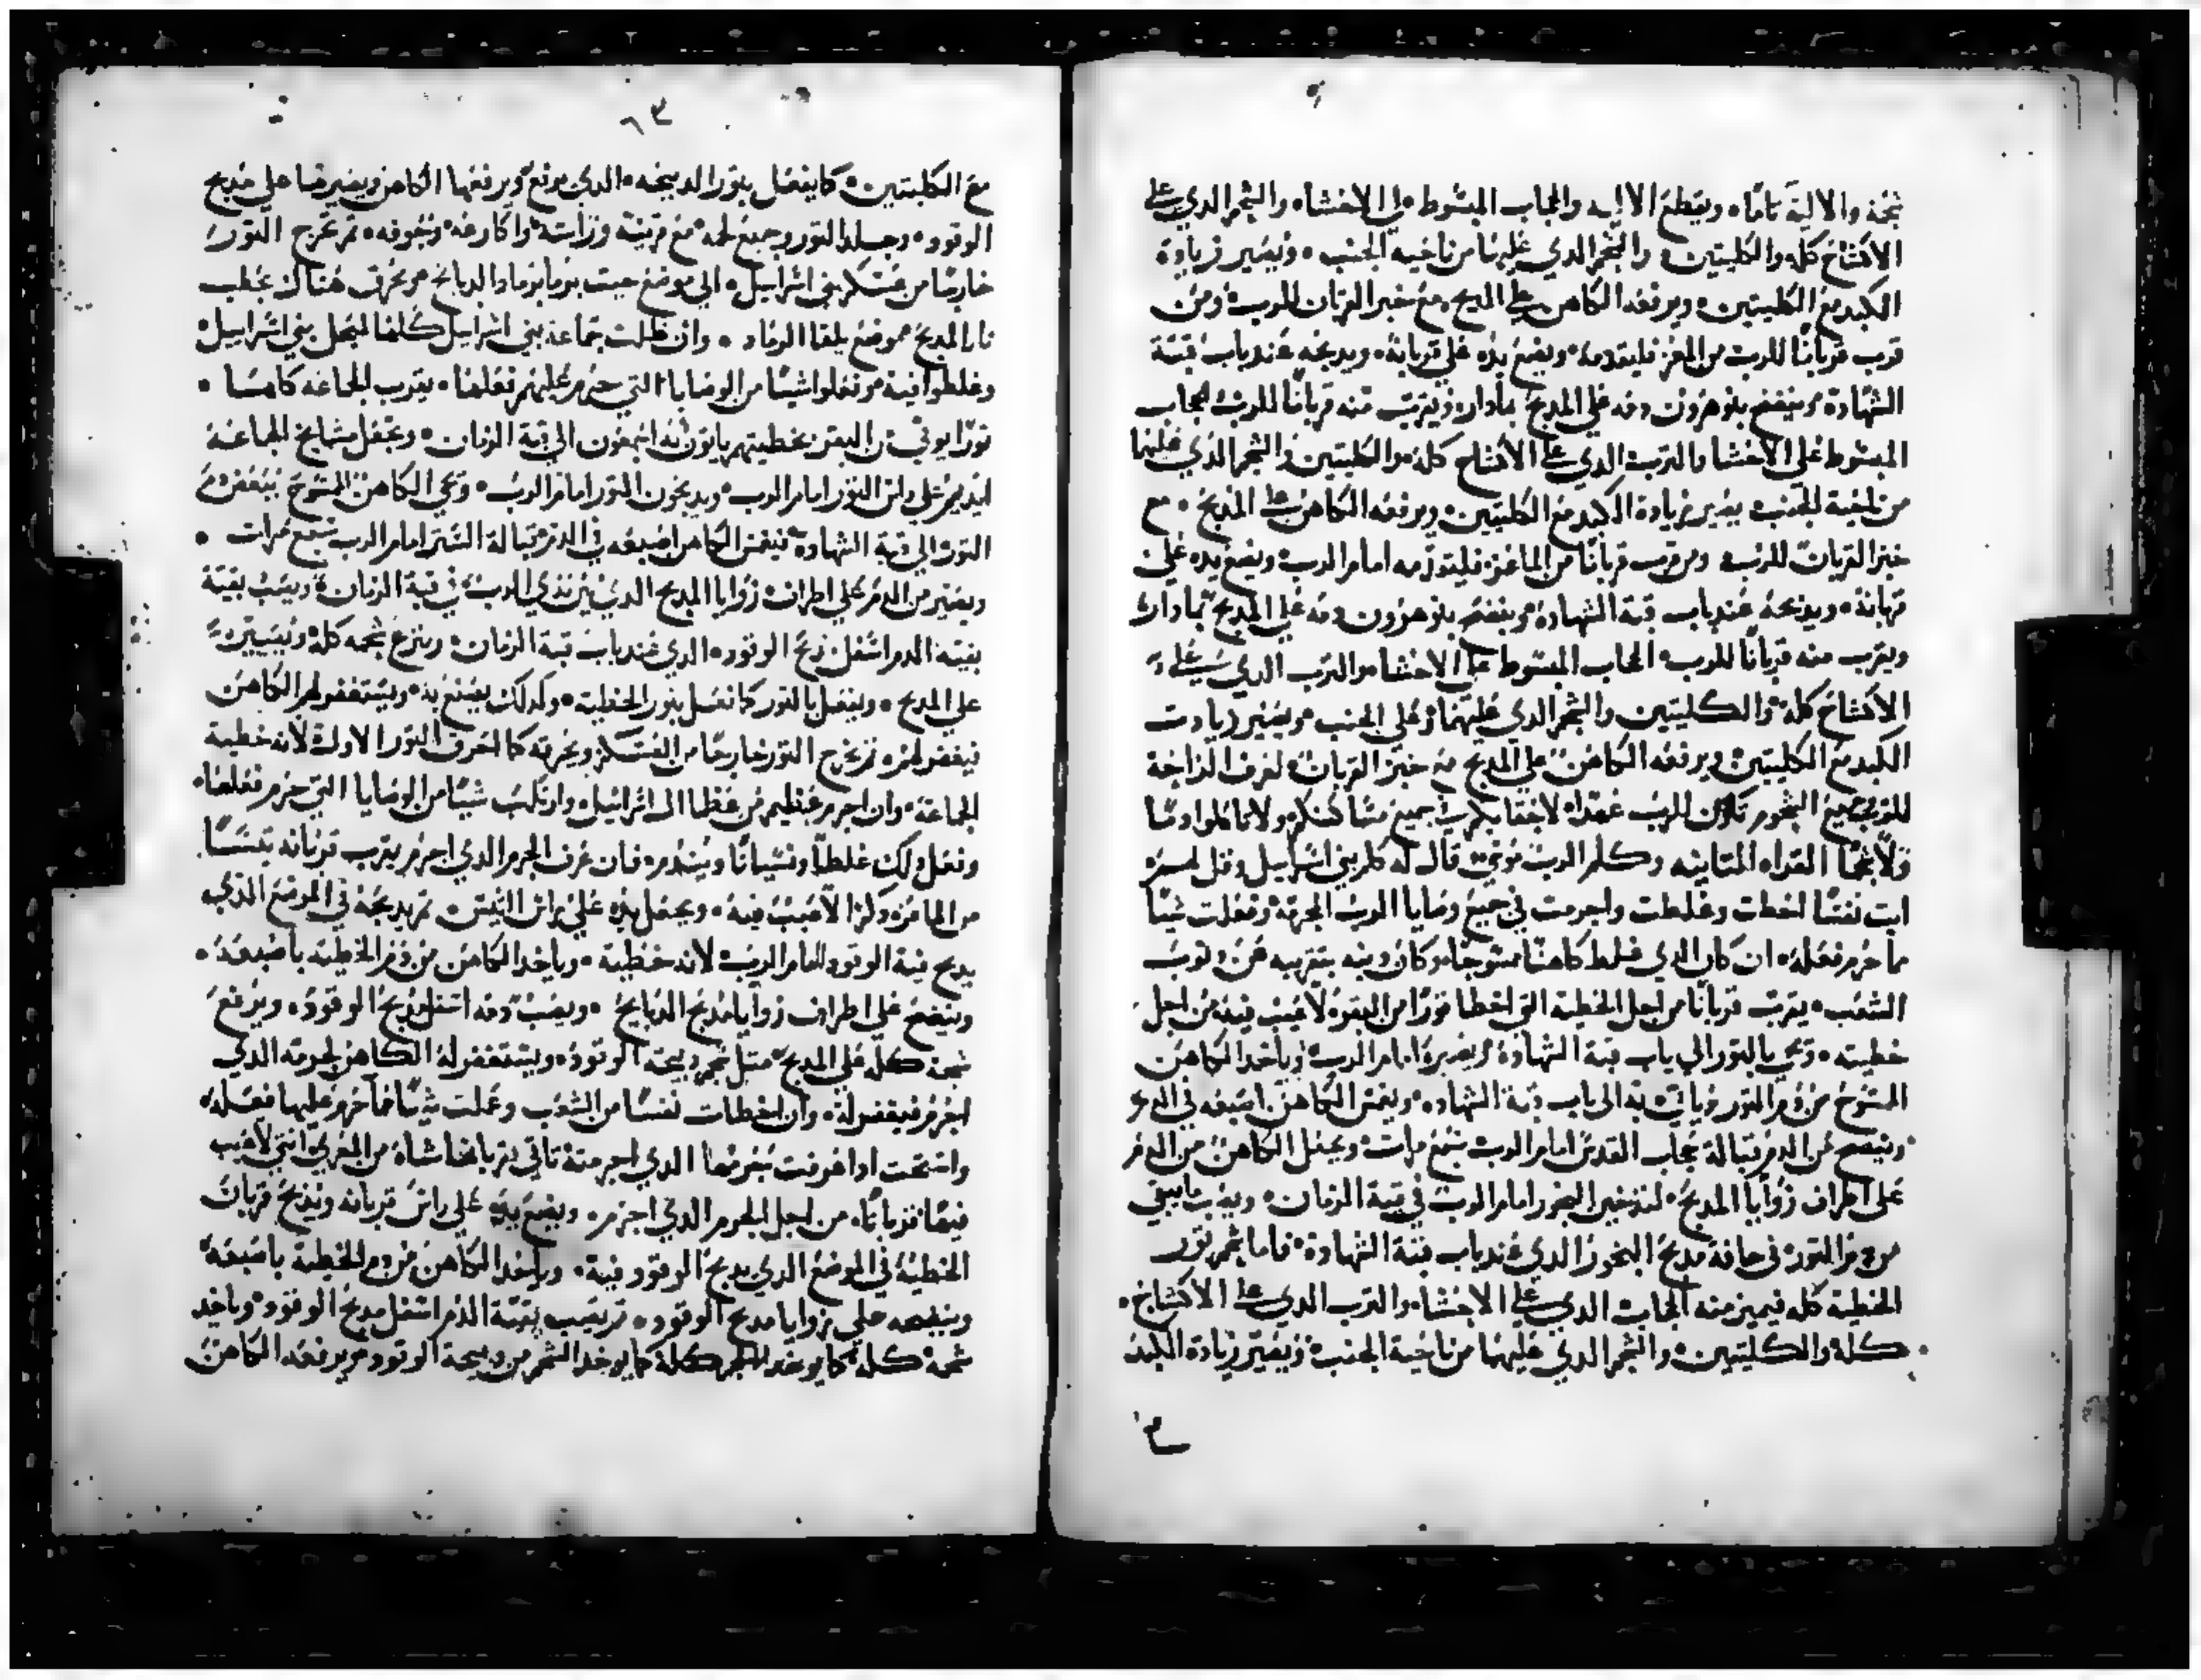 شحمة والالية تامًا، ويقطع الاليه والحجاب المبسوط علي الاحشا، والشحم الدي علي
الاكشاح كله والكليتين، والشحم الدي عليهما من ناحيه الجنب، ويصير زيادة
الكبد مع الكليتين، ويرفعه الكاهن علي المدبح مع خبز القربان للرب، ومن
قرب قربانًا للرب من المعز، فليقدمه ويضع يده علي قربانه، ويدبحه عند باب قبة
الشهادة، وينضح بنو هرون دمه علي المدبح بمادار، ويقرب منه قربانًا للرب الحجاب
المبسوط علي الاحشا والترب الدي علي الاكشاح كله، والكليتين والشحم الدي عليهما
من ناحية الجنب، يصير زيادة الكبد مع الكليتين، ويرفعه الكاهن علي المدبح، مع
خبز القربان للرب، ومن قرب قربانًا من الماعز، فليقدمه امام الرب ويضع يده علي
قربانة، ويدبحة عند باب قبة الشهادة، وينضح بنو هرون دمه علي المدبح بمادار،
ويقرب منه قربانًا للرب، الحجاب المبسوط علي الاحشا، والترب الدي علي
الاكشاح كلة، والكليتين والشحم الدي عليهما وعلي الجنب، ويصير زيادت
الكبد مع الكليتين، ويرفعه الكاهن علي المدبح مع خبز القربان، لعرف الراحة
للرب جميع الشحوم تكون للرب عهدًا لاحقابكم في جميع مساكنكم ولا تاكلوا دمًا
ولا شحمًا القراه التانيه وكلم الرب موسي قال له كلم بني اسراييل وقل لهم
ايت نفسًا اخطات وغلطت واجرمت في جميع وصايا الرب المحرمة، وفعلت شيًا
ما حرم فعله، ان كان الدي غلط كاهنًا ممسوحًا، وكان دنبه بتقريبه عن دنوب
الشعب، يقرب قربانًا من اجل الخطية التي اخطا تورًا من البقر، لا عيب فيه من اجل
خطيته، ويحي بالتور الي باب قبة الشهادة، ويصيره امام الرب، وياخد الكاهن
الممسوح من دم التور وياتي به الي باب قبة الشهاده، ويغمس الكاهن اصبعه في الدم
وينضح من الدم قبالة حجاب القدس امام الرب سبع مرات، ويجعل الكاهن من الدم
علي اطراف زوايا المدبح، لتدخين البخور امام الرب في قبة الزمان، ويصب مابيقي
من دم التور في حافة مدبح البخور الدي عند باب قبة الشهادة، فاما شحم تور
الخطية كله فيميز منه الحجاب الدي علي الاحشا، والترب الدي علي الاكشاح،
كله، والكليتين، والشحم الدي عليهما من ناحية الجنب، ويصير زيادة الكبد
٦٣
مع الكليتين، كما يفعل بتور الدبيحه، الدي يرفع، ويرفعها الكاهن ويصيرها علي مدبح
الوقود، وجلد التور وجميع لحمه مع قربته وراسه، واكارعه، وجوفه، تم تخرج التور
خارجًا من عسكر بني اسراييل، الي موضع حيت يرما برماد الدبايح، ويحرق هناك بحطب
نار المدبح موضع يلقا الرماد، وان ظلت جماعة بني اسراييل كلها لجهل بني اسراييل
وغلطوا فيه، وفعلوا شيًا من الوصايا التي حرم عليهم فعلها، يقرب الجماعه كاهنًا،
تورًا يوتي من البقر بخطيتهم ياتون به اجمعون الي قبة الزمان، ويجعل مشايخ الجماعة
ايديهم علي راس التور امام الرب، ويدبحون التور امام الرب، ويحي الكاهن الممسوح ببعض دم
التور الي قبة الشهادة، فيغمس الكاهن اصبعه في الدم قبالة الستر امام الرب سبع مرات،
ويصير من الدم علي اطراف زوايا المدبح الدي بين يدي الرب، في قبة الزمان، ويصب بقية
بقيه الدم اسفل مدبح الوقود، الدي عند باب قبة الزمان، وينزع شحمه كله، ويصيره
علي المدبح، ويفعل بالتور كما فعل بتور الخطية، وكدلك يصنع به، ويستغفر لهم الكاهن
فيغفر لهم، تم يخرج التور خارجًا من العسكر، ويحرقه كما احرق التور الاول، لانه خطية
الجماعة، وان اجرم عظيم من عظما ال اسراييل، وارتكب شيًا من الوصايا التي حرم فعلها،
وفعل دلك غلطًا ونسيانًا ويندم، فان عرف الجرم الدي اجرم يقرب قربانه تيسًا
من الماعز، دكرًا لا عيب فيه، ويجعل يده علي راس التيس، تم يدبحه في الموضع الدي
يدبح فية الوقود امام الرب، لانه خطية، وياخد الكاهن من دم الخطية باصبعه،
وينضح علي اطراف زوايا مدبح الدبايح، ويصب دمه اسفل مدبح الوقود، ويرفع
شحمة كله علي المدبح، متل شحم دبيحة الوقود، ويستغفر له الكاهن لجرمه الدي
اجرم فيغفر له، وان اخطات نفسًا من الشعب وعملت شيًا مما حرم عليها فعله،
واتمت ادا عرفت بجرمها الدي اجرمته تاتي بقربانها شاة من المعزي انتي لا عيب
فيها قربانًا، من اجل الجرم الدي اجرم، ويضع يده علي راس قربانه ويدبح قربان
الخطية، في الموضع الدي يدبح الوقود فيه، وياخد الكاهن من دم الخطية باصبعه
وينضحه علي زوايا مدبح الوقود، تم يصب بقية الدم اسفل مدبح الوقود، وياخد
شحمة كله، كما يوخد الشحم كلة كما يوخد الشحم من دبيحة الوقود، ويرفعه الكاهن